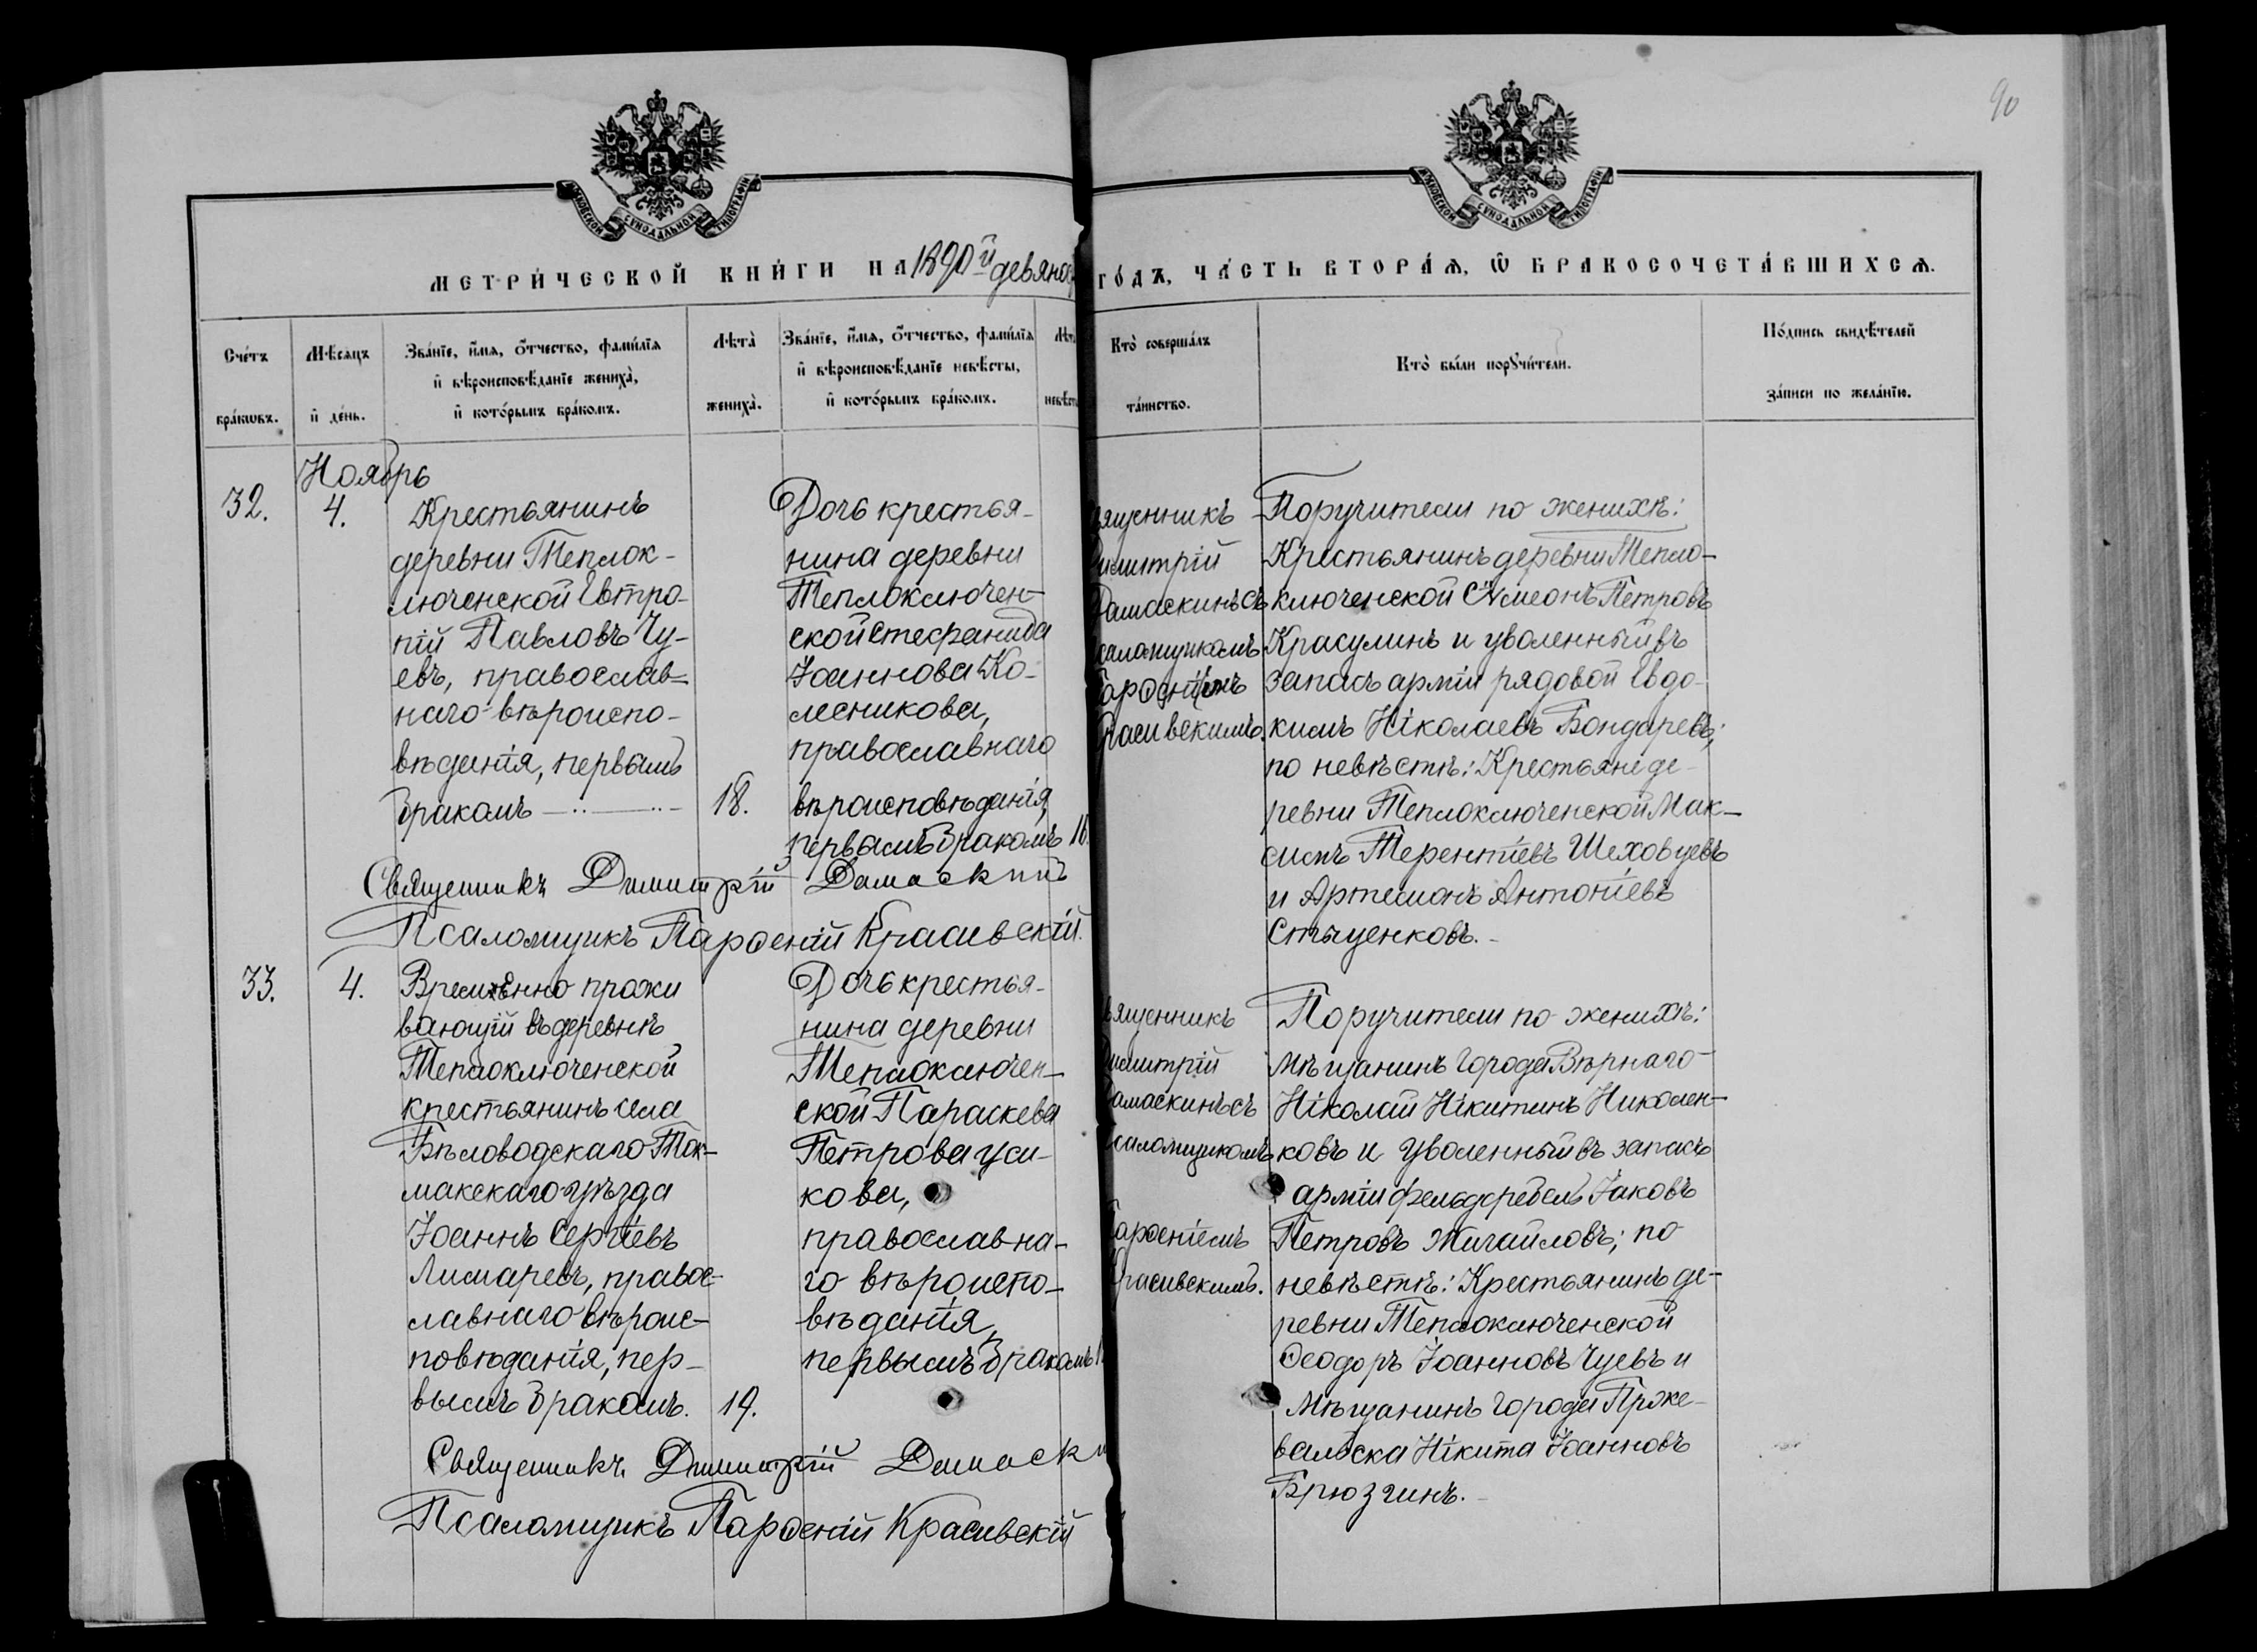 90
МОСКОВСКОЙ СѴНОДАЛЬНОЙ ТИПОГРАФІИ
МОСКОВСКОЙ СѴНОДАЛЬНОЙ ТИПОГРАФІИ
МЕТРИ́ЧЕСКОЙ КНИ́ГИ НА 1890й девяно
ГО́ДЪ, ЧА́СТЬ ВТОРА́Ѧ, Ѽ БРАКОСОЧЕТА́ВШИХСѦ.
Сче́тъ
бра́кѡвъ.
Мѣ́сѧцъ
и҆ де́нь.
Зва́нїе, и҆́мѧ, ѻ҆́тчество, фами́лїѧ
и҆ вѣроисповѣ́данїе жениха̀,
и҆ кото́рымъ бра́комъ.
Лѣта̀
жениха̀.
Зва́нїе, и҆́мѧ, ѻ҆́тчество, фами́лїѧ
и҆ вѣроисповѣ́данїе невѣ́сты,
и҆ кото́рымъ бра́комъ.
Кто̀ соверша́лъ
та́инство.
Кто̀ бы́ли порꙋчи́тели.
По́дпись свидѣ́телей
за́писи по жела́нїю.
Ноябрь
32.
4.
Крестьянинъ
деревни Теплок-
люченской Евтро-
пій Павловъ Чу-
евъ, православ-
наго вѣроиспо-
вѣданія, первымъ
бракомъ
18.
Дочь крестья-
нина деревни
Теплоключен-
ской Стефанида
Іоаннова Ко-
лесникова,
православнаго
вѣроисповѣданія,
первымъ бракомъ
ященникъ
имитрій
Дамаскинъ съ
саломщикомъ
арѳеніемъ
расивскимъ.
Поручители по женихѣ:
Крестьянинъ деревни Тепло-
ключенской Сѵмеонъ Петровъ
Красулинъ и уволенный въ
запасъ арміи рядовой Евдо-
кимъ Ніколаевъ Бондаревъ;
по невѣстѣ: Крестьяне де-
ревни Теплоключенской Мак-
симъ Терентіевъ Шеховцевъ
и Артемонъ Антоніевъ
Стыценковъ.
Священникъ Димитрій Дамаскинъ
Псаломщикъ Парѳеній Красивскій.
33.
4.
Временно прожи
вающій въ деревнѣ
Теплоключенской
крестьянинъ села
Бѣловодскаго Ток-
макскаго уѣзда
Іоаннъ Сергіевъ
Лимаревъ, правос-
лавнаго вѣроис-
повѣданія, пер-
вымъ бракомъ.
19.
Дочь крестья-
нина деревни
Теплоключен-
ской Параскева
Петрова Уси-
кова,
православна-
го вѣроиспо-
вѣданія,
первымъ бракомъ
вященникъ
имитрій
амаскинъ съ
саломщикомъ
арѳеніемъ
расивскимъ.
Поручители по женихѣ:
Мѣщанинъ города Вѣрнаго
Ніколай Нікитинъ Николен-
ковъ и уволенный въ запасъ
арміи фельдфебель Іаковъ
Петровъ Михайловъ; по
невѣстѣ: Крестьянинъ де-
ревни Теплоключенской
Ѳеодоръ Іоанновъ Чуевъ и
Мѣщанинъ города Прже-
вальска Нікита Іоанновъ
Брюзгинъ.
Священникъ Димитрій Дамаски
Псаломщикъ Парѳеній Красивскій